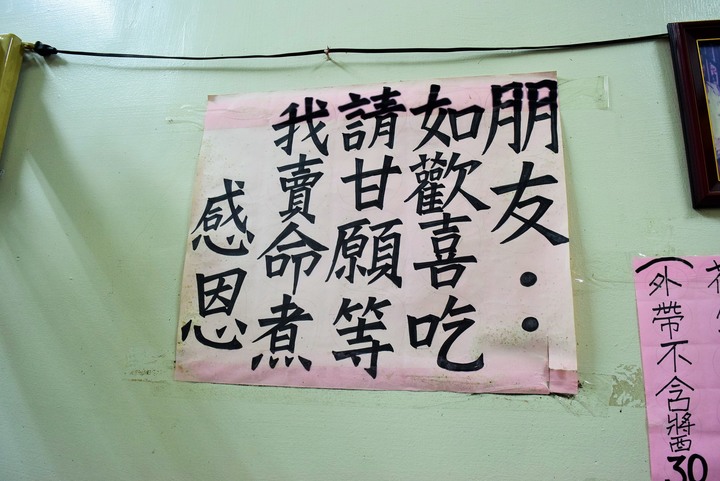 朋友：
如歡喜吃
請甘願等
我賣命煮
感恩
(外帶不含醬
30